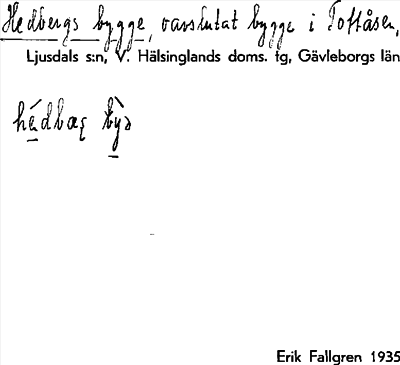 Hedbergs bygge, oavslutat bygge i Toftåsen,
Ljusdals s:n, V. Hälsinglands doms. tg, Gävleborgs län
Erik Fallgren 1935